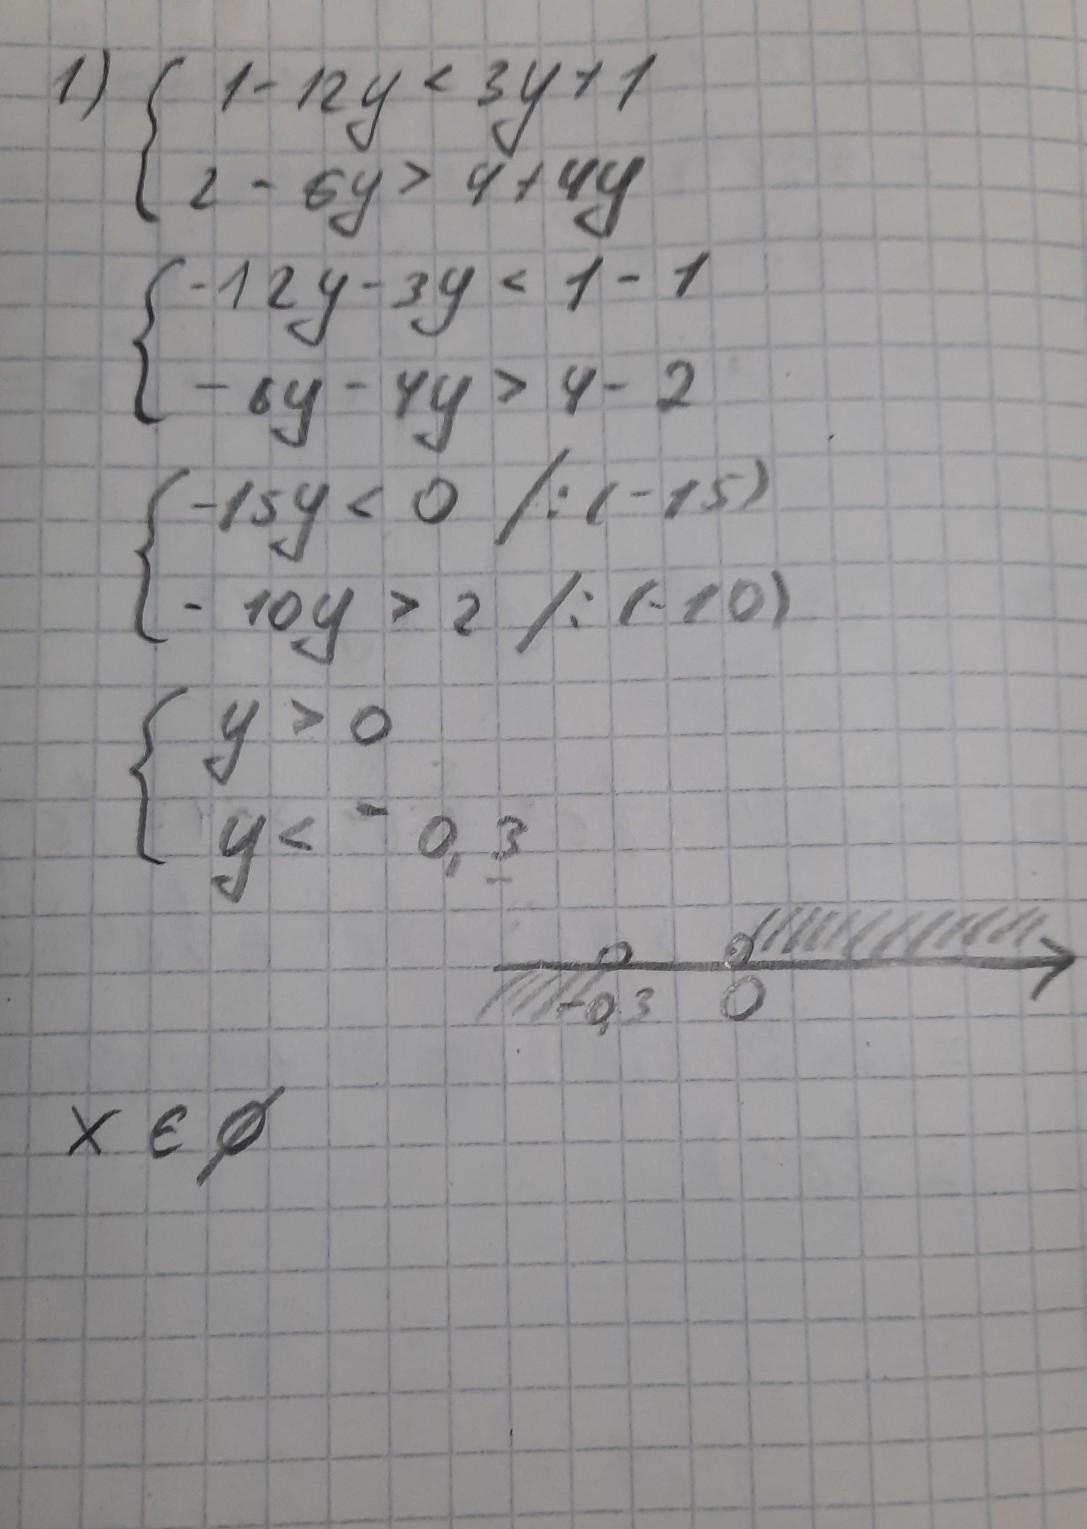 1) { 1 - 12y < 3y + 1
2 - 6y > 4 + 4y
{ -12y - 3y < 1 - 1
- 6y - 4y > 4 - 2
{ -15y < 0 /:(-15)
- 10y > 2 /:(-10)
{ y > 0
y < - 0,3
-0,3 0
x ∈ ∅